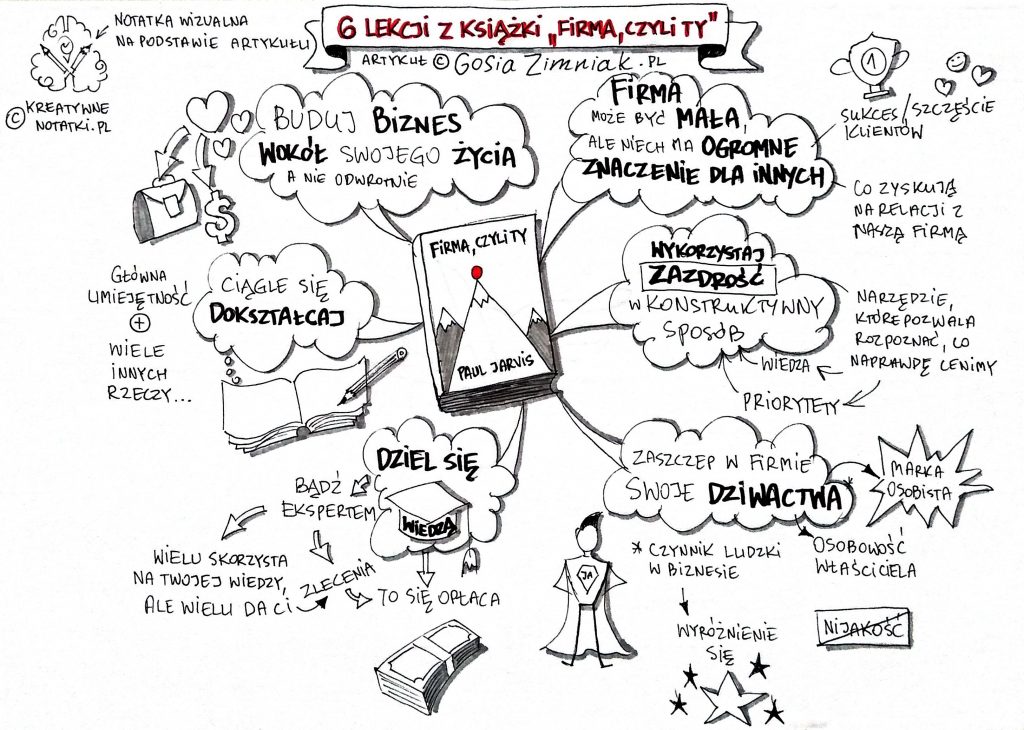 6 LEKCJI Z KSIĄŻKI „FIRMA, CZYLI TY"
ARTYKUŁ © GOSIA ZIMNIAK.PL
NOTATKA WIZUALNA
NA PODSTAWIE ARTYKUŁU
© KREATYWNE
NOTATKI.PL
BUDUJ BIZNES
WOKÓŁ SWOJEGO ŻYCIA
A NIE ODWROTNIE
$
FIRMA
MOŻE BYĆ MAŁA,
ALE NIECH MA OGROMNE
ZNACZENIE DLA INNYCH
1
SUKCES/SZCZĘŚCIE
KLIENTÓW
CO ZYSKUJĄ
NA RELACJI Z
NASZĄ FIRMĄ
FIRMA, CZYLI TY
PAUL JARVIS
CIĄGLE SIĘ
DOKSZTAŁCAJ
GŁÓWNA
UMIEJĘTNOŚĆ
+
WIELE
INNYCH
RZECZY...
WYKORZYSTAJ
ZAZDROŚĆ
W KONSTRUKTYWNY
SPOSÓB
NARZĘDZIE,
KTÓRE POZWALA
ROZPOZNAĆ, CO
NAPRAWDĘ CENIMY
WIEDZA
PRIORYTETY
DZIEL SIĘ
WIEDZĄ
BĄDŹ
EKSPERTEM
WIELU SKORZYSTA
NA TWOJEJ WIEDZY,
ALE WIELU DA CI
ZLECENIA
TO SIĘ OPŁACA
ZASZCZEP W FIRMIE
SWOJE DZIWACTWA*
MARKA
OSOBISTA
OSOBOWOŚĆ
WŁAŚCICIELA
JA
* CZYNNIK LUDZKI
W BIZNESIE
WYRÓŻNIENIE
SIĘ
NIJAKOŚĆ